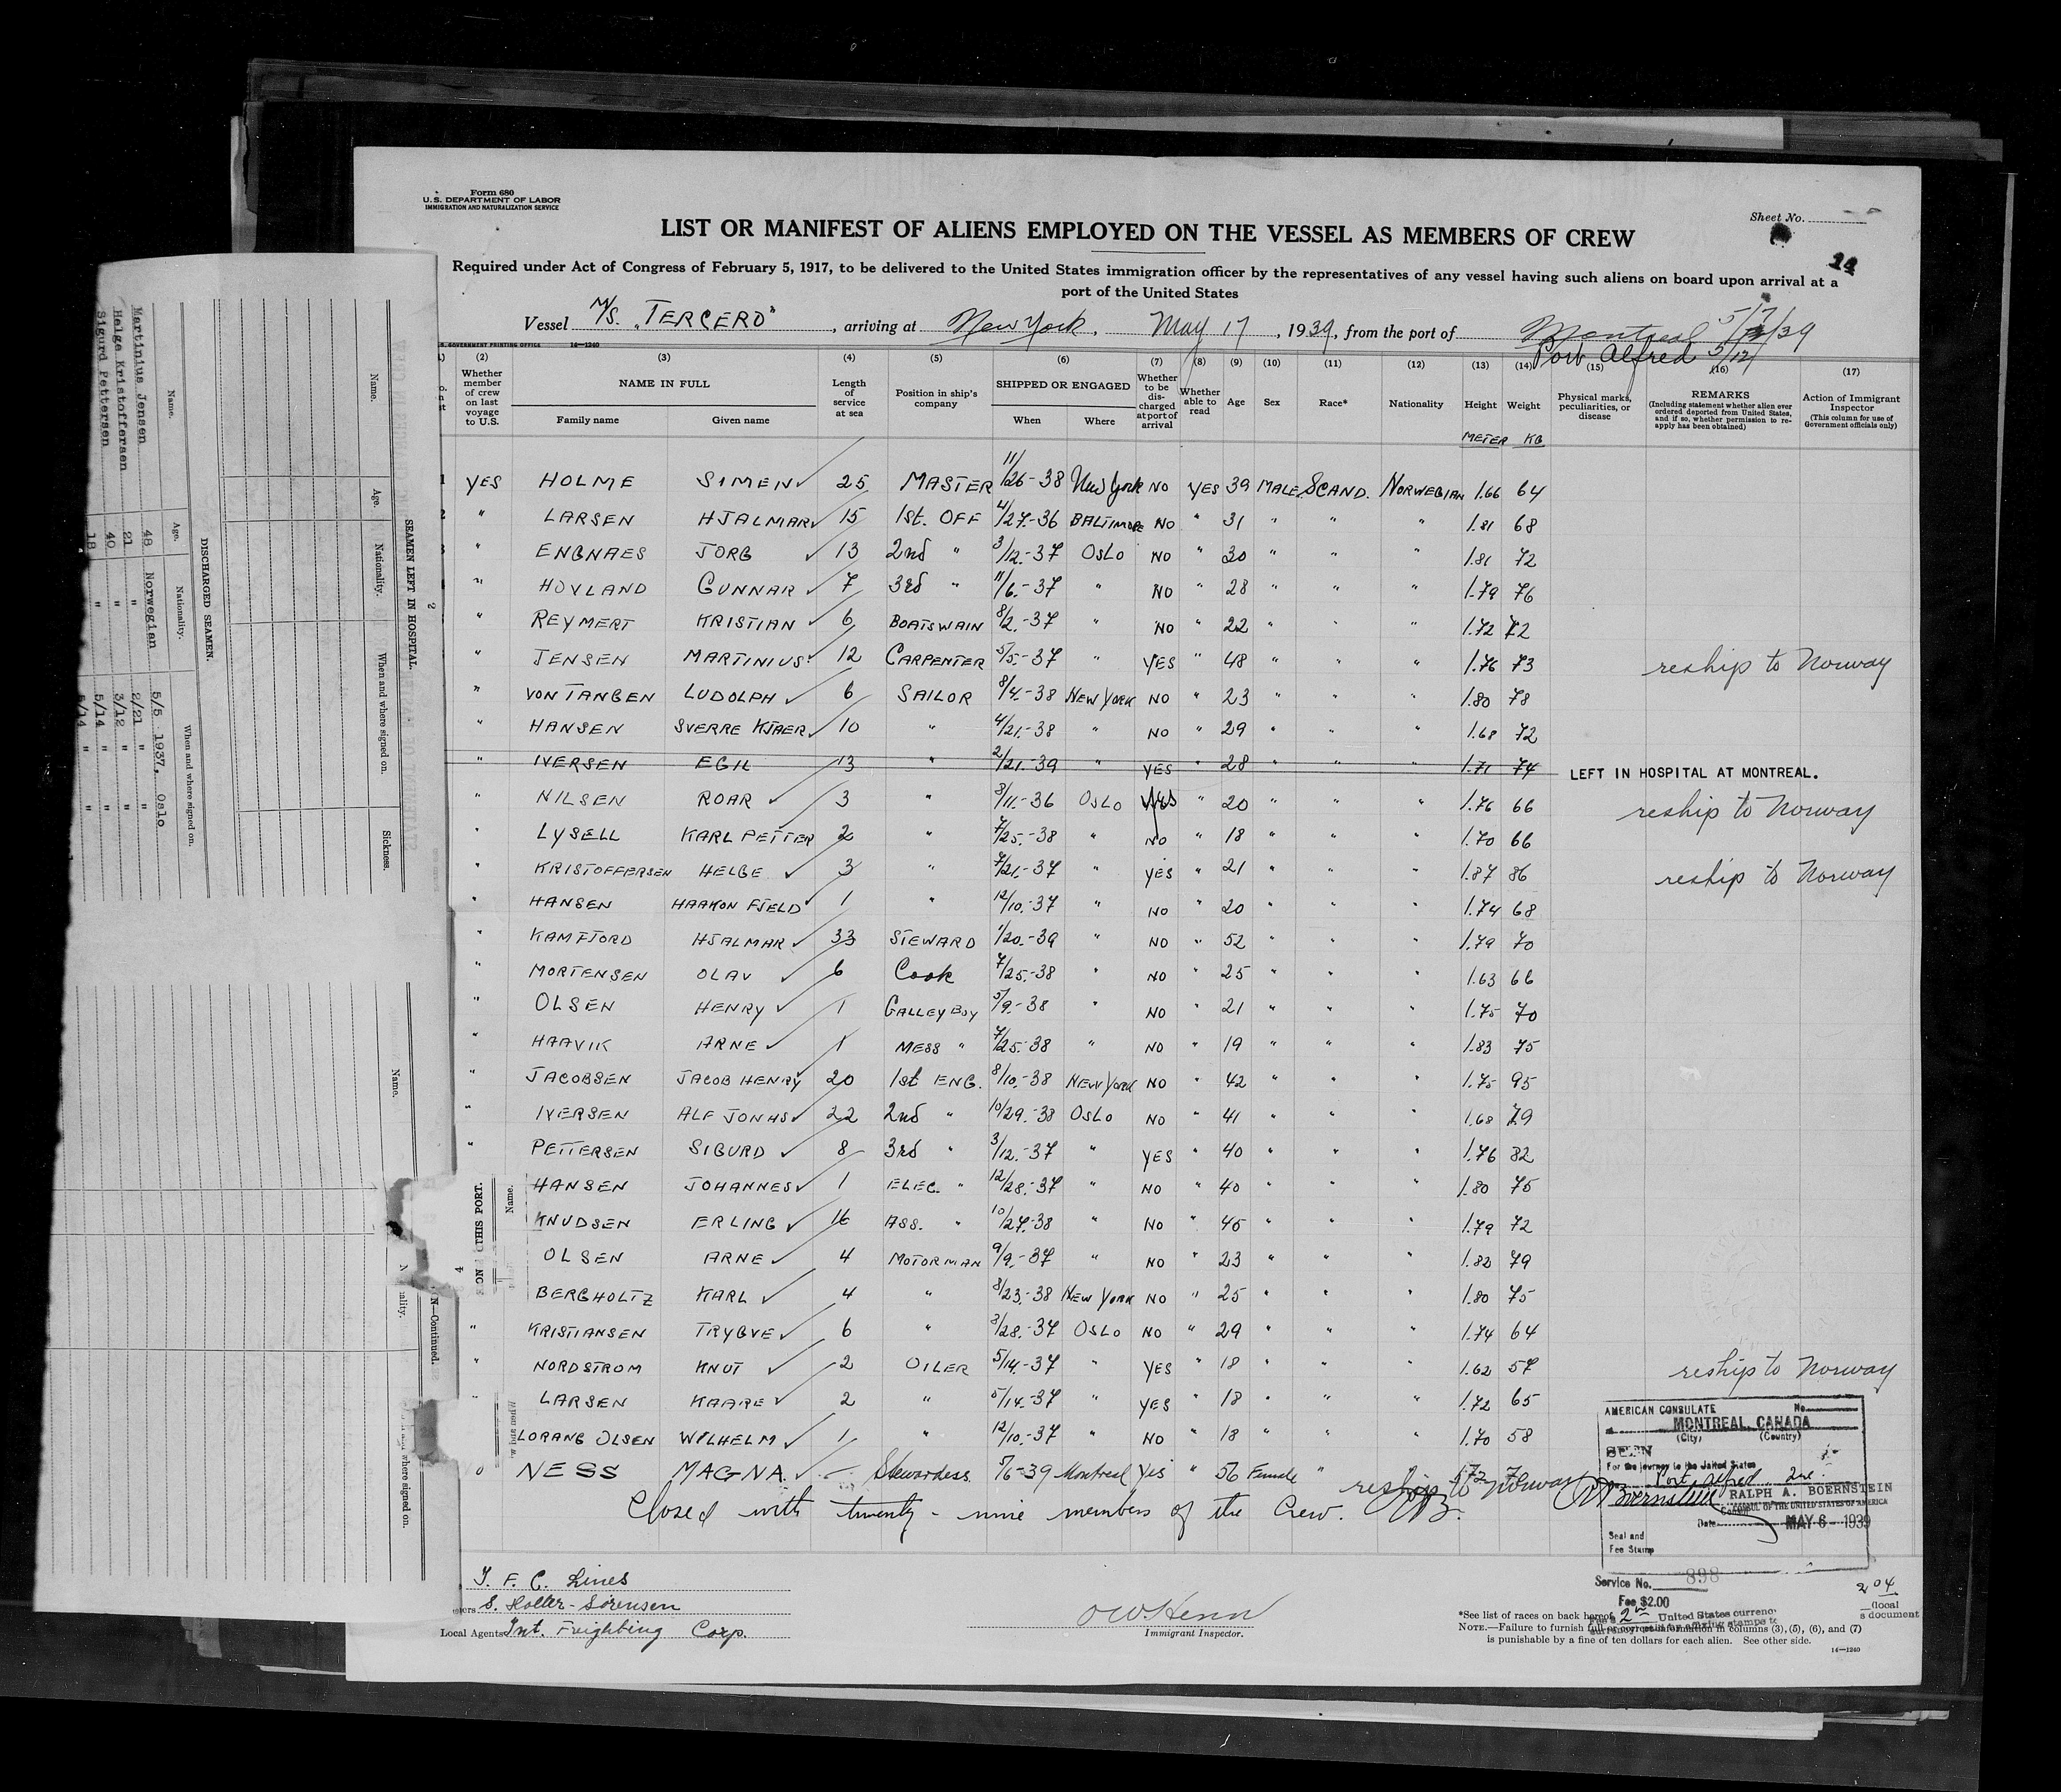 Form 680
U. S. DEPARTMENT OF LABOR
IMMIGRATION AND NATURALIZATION SERVICE
Sheet No.
LIST OR MANIFEST OF ALIENS EMPLOYED ON THE VESSEL AS MEMBERS OF CREW
Required under Act of Congress of February 5, 1917, to be delivered to the United States immigration officer by the representatives of any vessel having such aliens on board upon arrival at a
port of the United States
Vessel M/S. "TERCERO", arriving at New York, May 17, 1939, from the port of Montreal
Port Alfred 5/12/
U. S. GOVERNMENT PRINTING OFFICE 14—1240
(2) (3) (4) (5) (6) (7) (8) (9) (10) (11) (12) (13) (14) (15) (16) (17)
Whether member of crew on last voyage to U.S.
NAME IN FULL
Family name Given name
Length of service at sea
Position in ship's company
SHIPPED OR ENGAGED
When Where
Whether to be discharged at port of arrival
Whether able to read
Age
Sex
Race*
Nationality
Height
Weight
Physical marks, peculiarities, or disease
REMARKS
(Including statement whether alien ever ordered deported from United States, and if so, whether permission to reapply has been obtained)
Action of Immigrant Inspector
(This column for use of Government officials only)
METER KG
1 YES HOLME SIMEN 25 MASTER 11/26-38 New York NO YES 39 MALE SCAND. NORWEGIAN 1.66 64
2 " LARSEN HJALMAR 15 1st. OFF 4/27.-36 BALTIMORE NO " 31 " " " 1.81 68
3 " ENGNAES JORG 13 2nd " 3/12.-37 OSLO NO " 30 " " " 1.81 72
" HOVLAND GUNNAR 7 3rd " 11/6.-37 " NO " 28 " " " 1.79 76
" REYMERT KRISTIAN 6 BOATSWAIN 8/2.-37 " NO " 22 " " " 1.72 72
" JENSEN MARTINIUS 12 CARPENTER 5/5.-37 " YES " 48 " " " 1.76 73 reship to Norway
" VON TANGEN LUDOLPH 6 SAILOR 8/4.-38 NEW YORK NO " 23 " " " 1.80 78
" HANSEN SVERRE KJAER 10 " 4/21.-38 " NO " 29 " " " 1.68 72
" IVERSEN EGIL 13 " 2/21.-39 " YES " 28 1.71 74 LEFT IN HOSPITAL AT MONTREAL.
" NILSEN ROAR 3 " 8/11.-36 OSLO Yes " 20 " " " 1.76 66 reship to Norway
" LYSELL KARL PETTER 2 " 7/25.-38 " NO " 18 " " " 1.70 66
" KRISTOFFERSEN HELGE 3 " 7/21.-37 " YES " 21 " " " 1.87 86 reship to Norway
" HANSEN HAAKON FJELD 1 " 12/10.-37 " NO " 20 " " " 1.74 68
" KAMFJORD HJALMAR 33 STEWARD 1/20.-39 " NO " 52 " " " 1.79 70
" MORTENSEN OLAV 6 Cook 7/25.-38 " NO " 25 " " " 1.63 66
" OLSEN HENRY 1 GALLEY BOY 5/9.-38 " NO " 21 " " " 1.75 70
" HAAVIK ARNE 1 MESS " 7/25.-38 " NO " 19 " " " 1.83 75
" JACOBSEN JACOB HENRY 20 1st ENG. 8/10.-38 NEW YORK NO " 42 " " " 1.75 95
" IVERSEN ALF JONAS 22 2nd " 10/29.-38 OSLO NO " 41 " " " 1.68 79
" PETTERSEN SIGURD 8 3rd " 3/12.-37 " YES " 40 " " " 1.76 82
HANSEN JOHANNES 1 ELEC. " 12/28.-37 " NO " 40 " " " 1.80 75
KNUDSEN ERLING 16 ASS. " 10/27.-38 " NO " 45 " " " 1.79 72
OLSEN ARNE 4 MOTORMAN 9/9.-37 " NO " 23 " " " 1.82 79
BERGHOLTZ KARL 4 " 8/23.-38 NEW YORK NO " 25 " " " 1.80 75
" KRISTIANSEN TRYGVE 6 " 8/28.-37 OSLO NO " 29 " " " 1.74 64
" NORDSTROM KNUT 2 OILER 5/14.-37 " YES " 18 " " " 1.62 57 reship to Norway
" LARSEN KAARE 2 " 5/14.-37 " YES " 18 " " " 1.72 65
LORANG OLSEN WILHELM 1 " 12/10.-37 " NO " 18 " " " 1.70 58
NESS MAGNA — Stewardess 5/6-39 Montreal Yes " 56 Female " reship to Norway
Closed with twenty-nine members of the Crew.
AMERICAN CONSULATE No.
MONTREAL, CANADA
(City) (Country)
SEEN
For the journey to the United States
Port Alfred
RALPH A. BOERNSTEIN
CONSUL OF THE UNITED STATES OF AMERICA
Date MAY 6 - 1939
Seal and
Fee Stamp
Service No. 898
Fee $2.00
T. F. C. Lines
S. Holter-Sörensen
Local Agents Int. Freighting Corp.
Immigrant Inspector.
*See list of races on back hereof.
NOTE.—Failure to furnish full or correct information in columns (3), (5), (6), and (7)
is punishable by a fine of ten dollars for each alien. See other side.
14—1240
2
SEAMEN LEFT IN HOSPITAL.
Name. Age. Nationality. When and where signed on. Sickness.
DISCHARGED SEAMEN.
Name. Age. Nationality. When and where signed on.
Martinius Jensen 48 Norwegian 5/5 1937. Oslo
Helge Kristoffersen 21 " 2/21 " "
Sigurd Pettersen 40 " 3/12 " "
18 " 5/14 " "
5/14 " "
4
THIS PORT.
Name.
N—Continued.
Name.
where signed on.